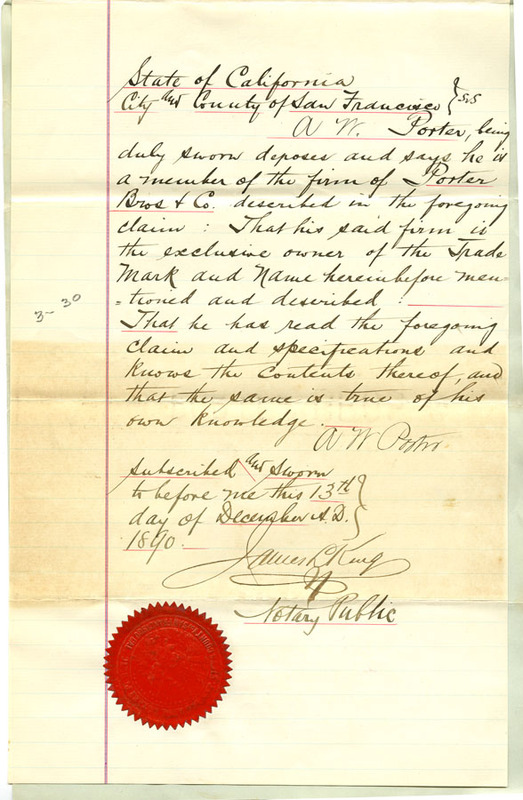 State of California
City and County of San Francisco } S.S
A W. Porter, being
duly sworn deposes and says he is
a member of the firm of Porter
Bros & Co. described in the foregoing
claim : That his said firm is
the exclusive owner of the Trade
Mark and Name hereinbefore men-
-tioned and described :
That he has read the foregoing
claim and specifications and
knows the contents thereof, and
that the same is true of his
own knowledge.
A W Porter.
3-30
Subscribed and Sworn
to before me this 13th
day of December A.D.
1890.
James L King
Notary Public